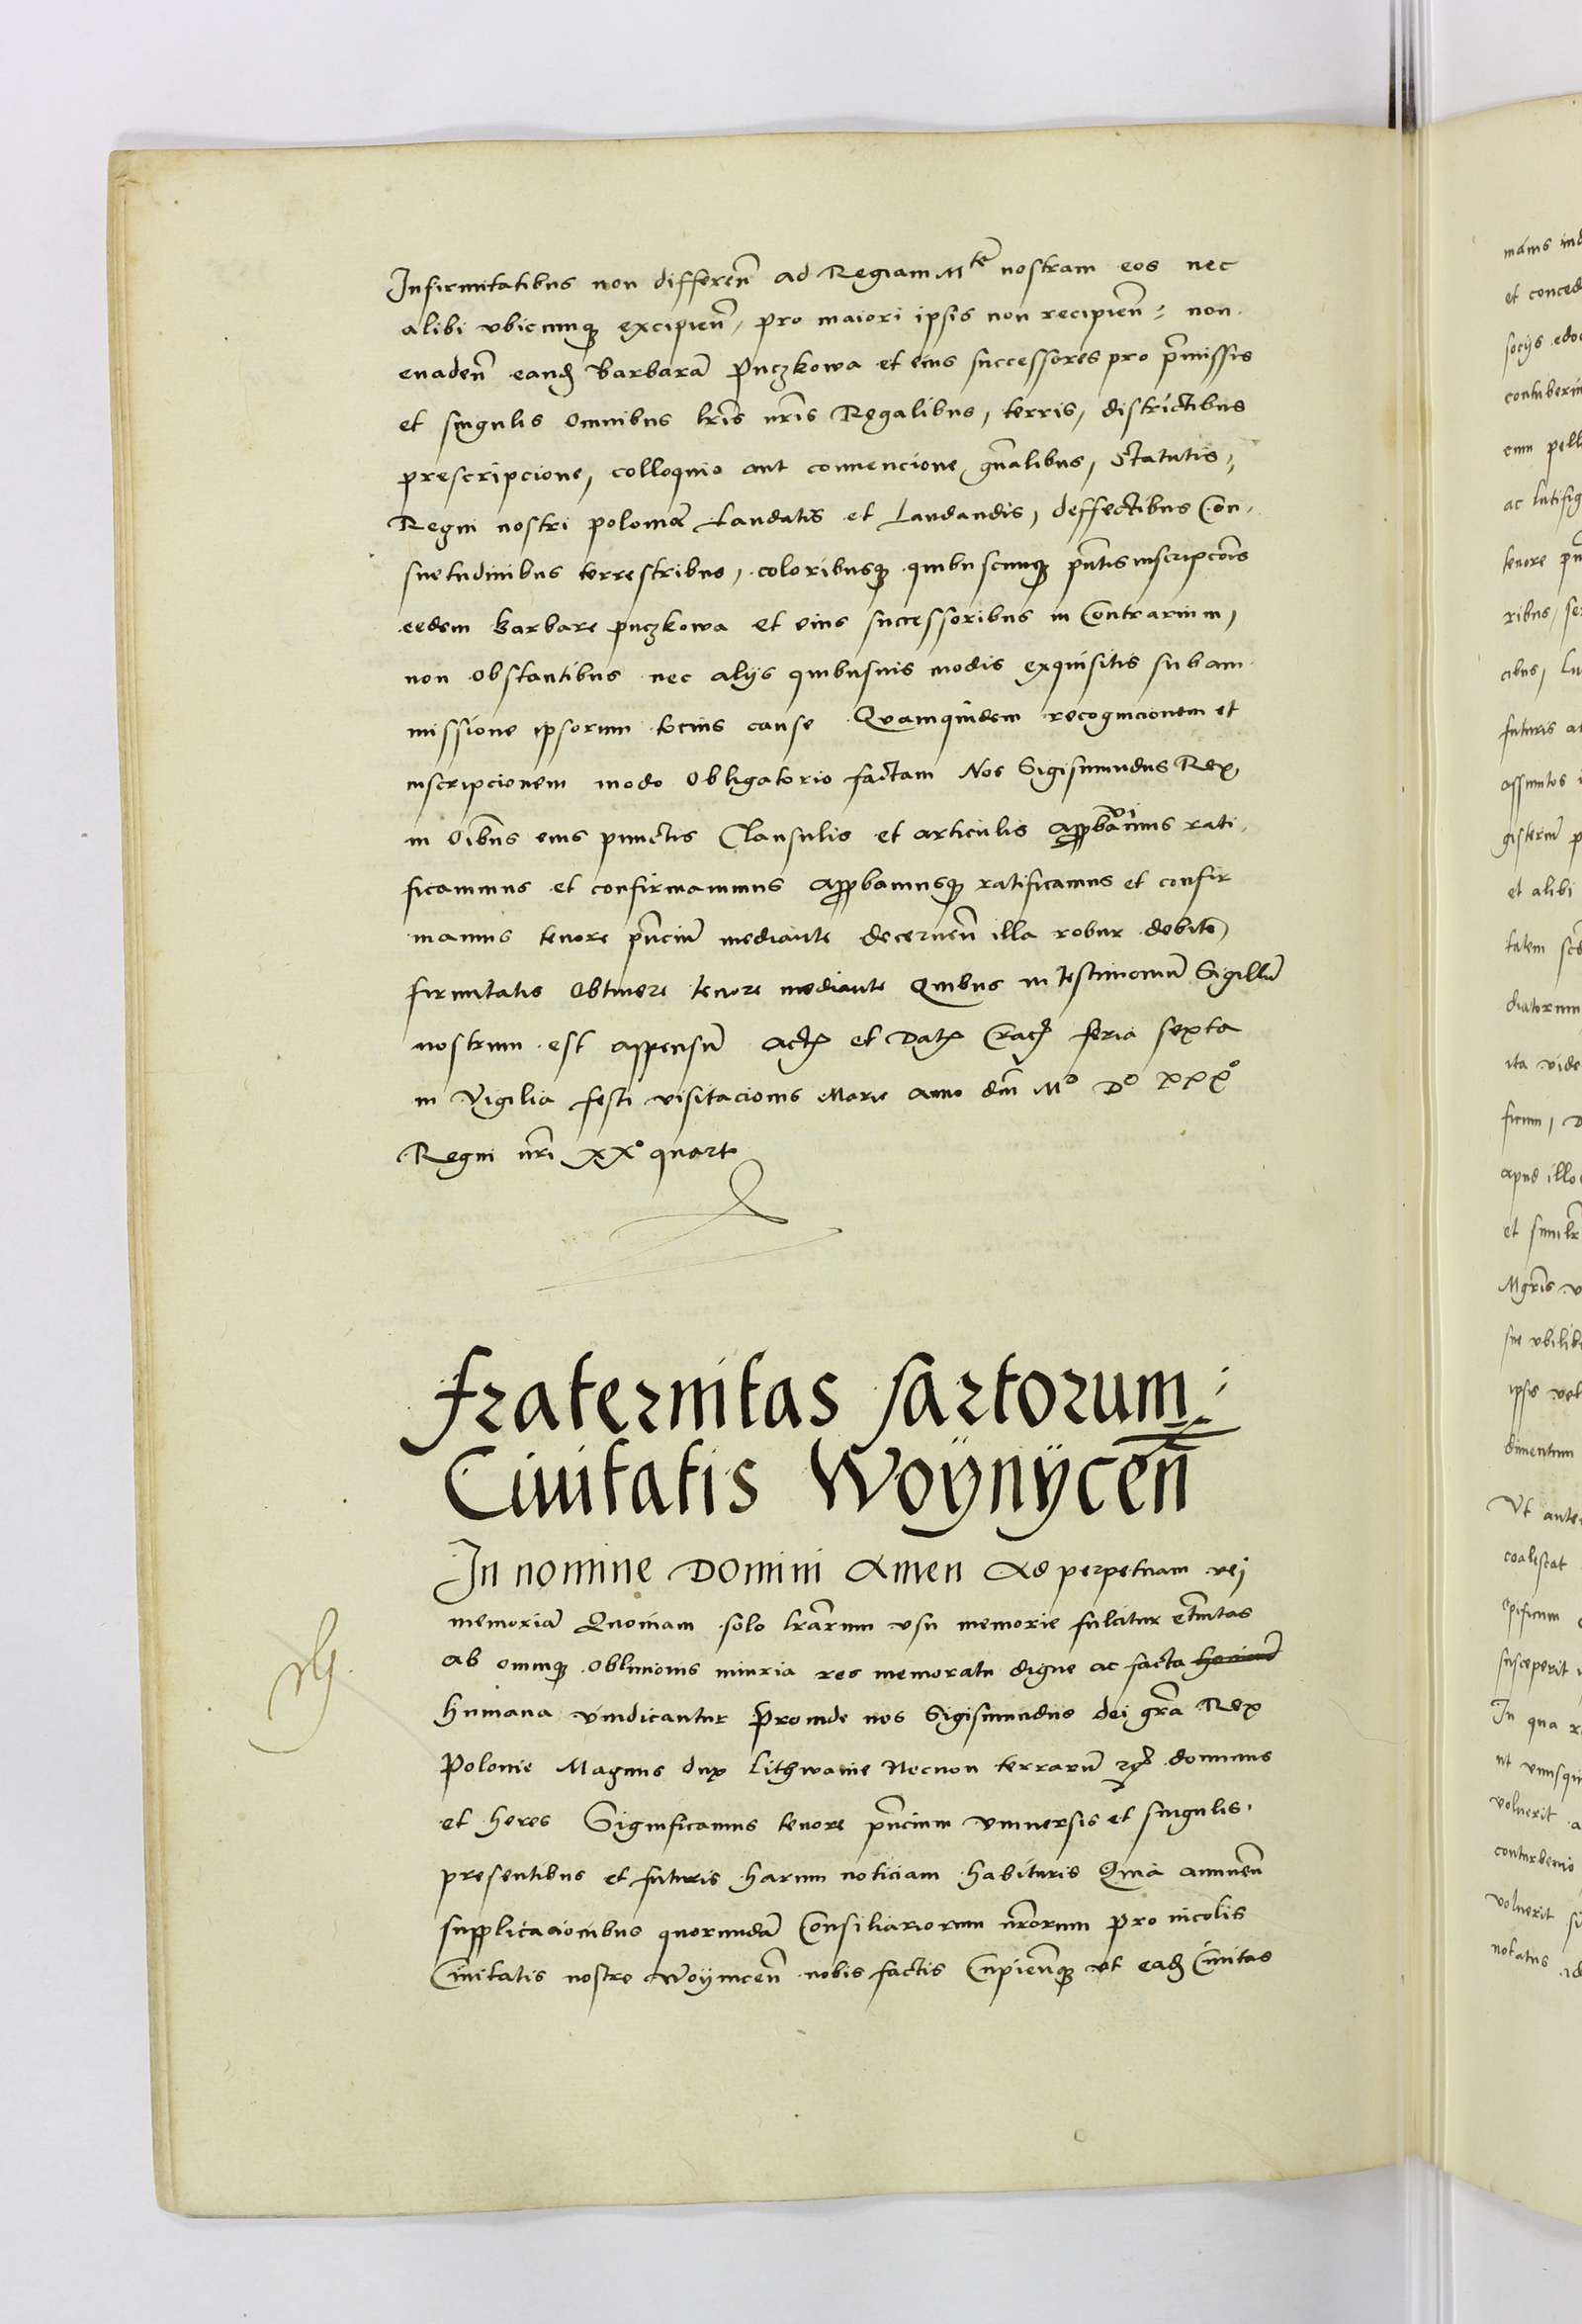 Infirmitatibus non differen̄ ad Regiam Mtē nostram eos nec
alibi vbicunqȝ excipien̄, pro maiori ipsis non recipien̄; non
euaden̄ eandȝ Barbarā Puczkowa et eius successores pro p̄missis
et singulis Omnibus lr̄is nr̄is Regalibus, terris, districtibus
prescripcione, colloquio aut conuencione, gn̄alibus, Statutis,
Regni nostri polonię Laudatis et Laudandis, deffectibus Con,
suetudinibus terrestribus, coloribusqȝ quibuscunqȝ pn̄tis inscripcōis
eedem Barbare puczkowa et eius successoribus in Contrarium,
non Obstantibus nec alijs quibusuis modis exquisitis sub am
missione ipsorum tocius cause Quamquidem recognicionem et
inscripcionem modo Obligatorio factam Nos Sigismundus Rex,
in Oībus eius punctis Clausulis et articulis app̄bauimus rati,
ficauimus et confirmauimus app̄bamusqȝ ratificamus et confir
mamus tenore pn̄cium mediante decernen̄ illa robur debite
firmitatis Obtinere tenore mediante Quibus in testimoniū Sigillū
nostrum est appensū actȝ et Datȝ Cracȝ feria sexta
in Vigilia festi visitacionis Marie anno dn̄i Mo Do xxxo
Regni nr̄i xxo quarto
fraternitas sartorum
Ciuitatis Woÿnÿcen̄
In nomine Domini Amen Ad perpetuam rei
memoriā Quoniam solo lr̄arum vsu memorie fulcitur et̄nitas
ab omniqȝ obliuionis iniuria res memoratu digne ac facta
humana vindicantur Proinde nos Sigismundus dei gr̄a Rex
Polonie Magnus dux Lithwanie Necnon terrarū dominus
et heres Significamus tenore pn̄cium vniuersis et singulis,
presentibus et futuris harum noticiam habituris Quia annuen̄
supplicacionibus quorundā Consiliariorum nr̄orum pro incolis
Ciuitatis nostre Woynicen̄ nobis factis Cupien̄qȝ vt eadȝ Ciuitas
et conced
et alibi
ita vide
apud illo
ipsis vel
dimentum
Vt ante
coalescat
susceperit
In qua
voluerit
conturbernio
voluerit
notatus